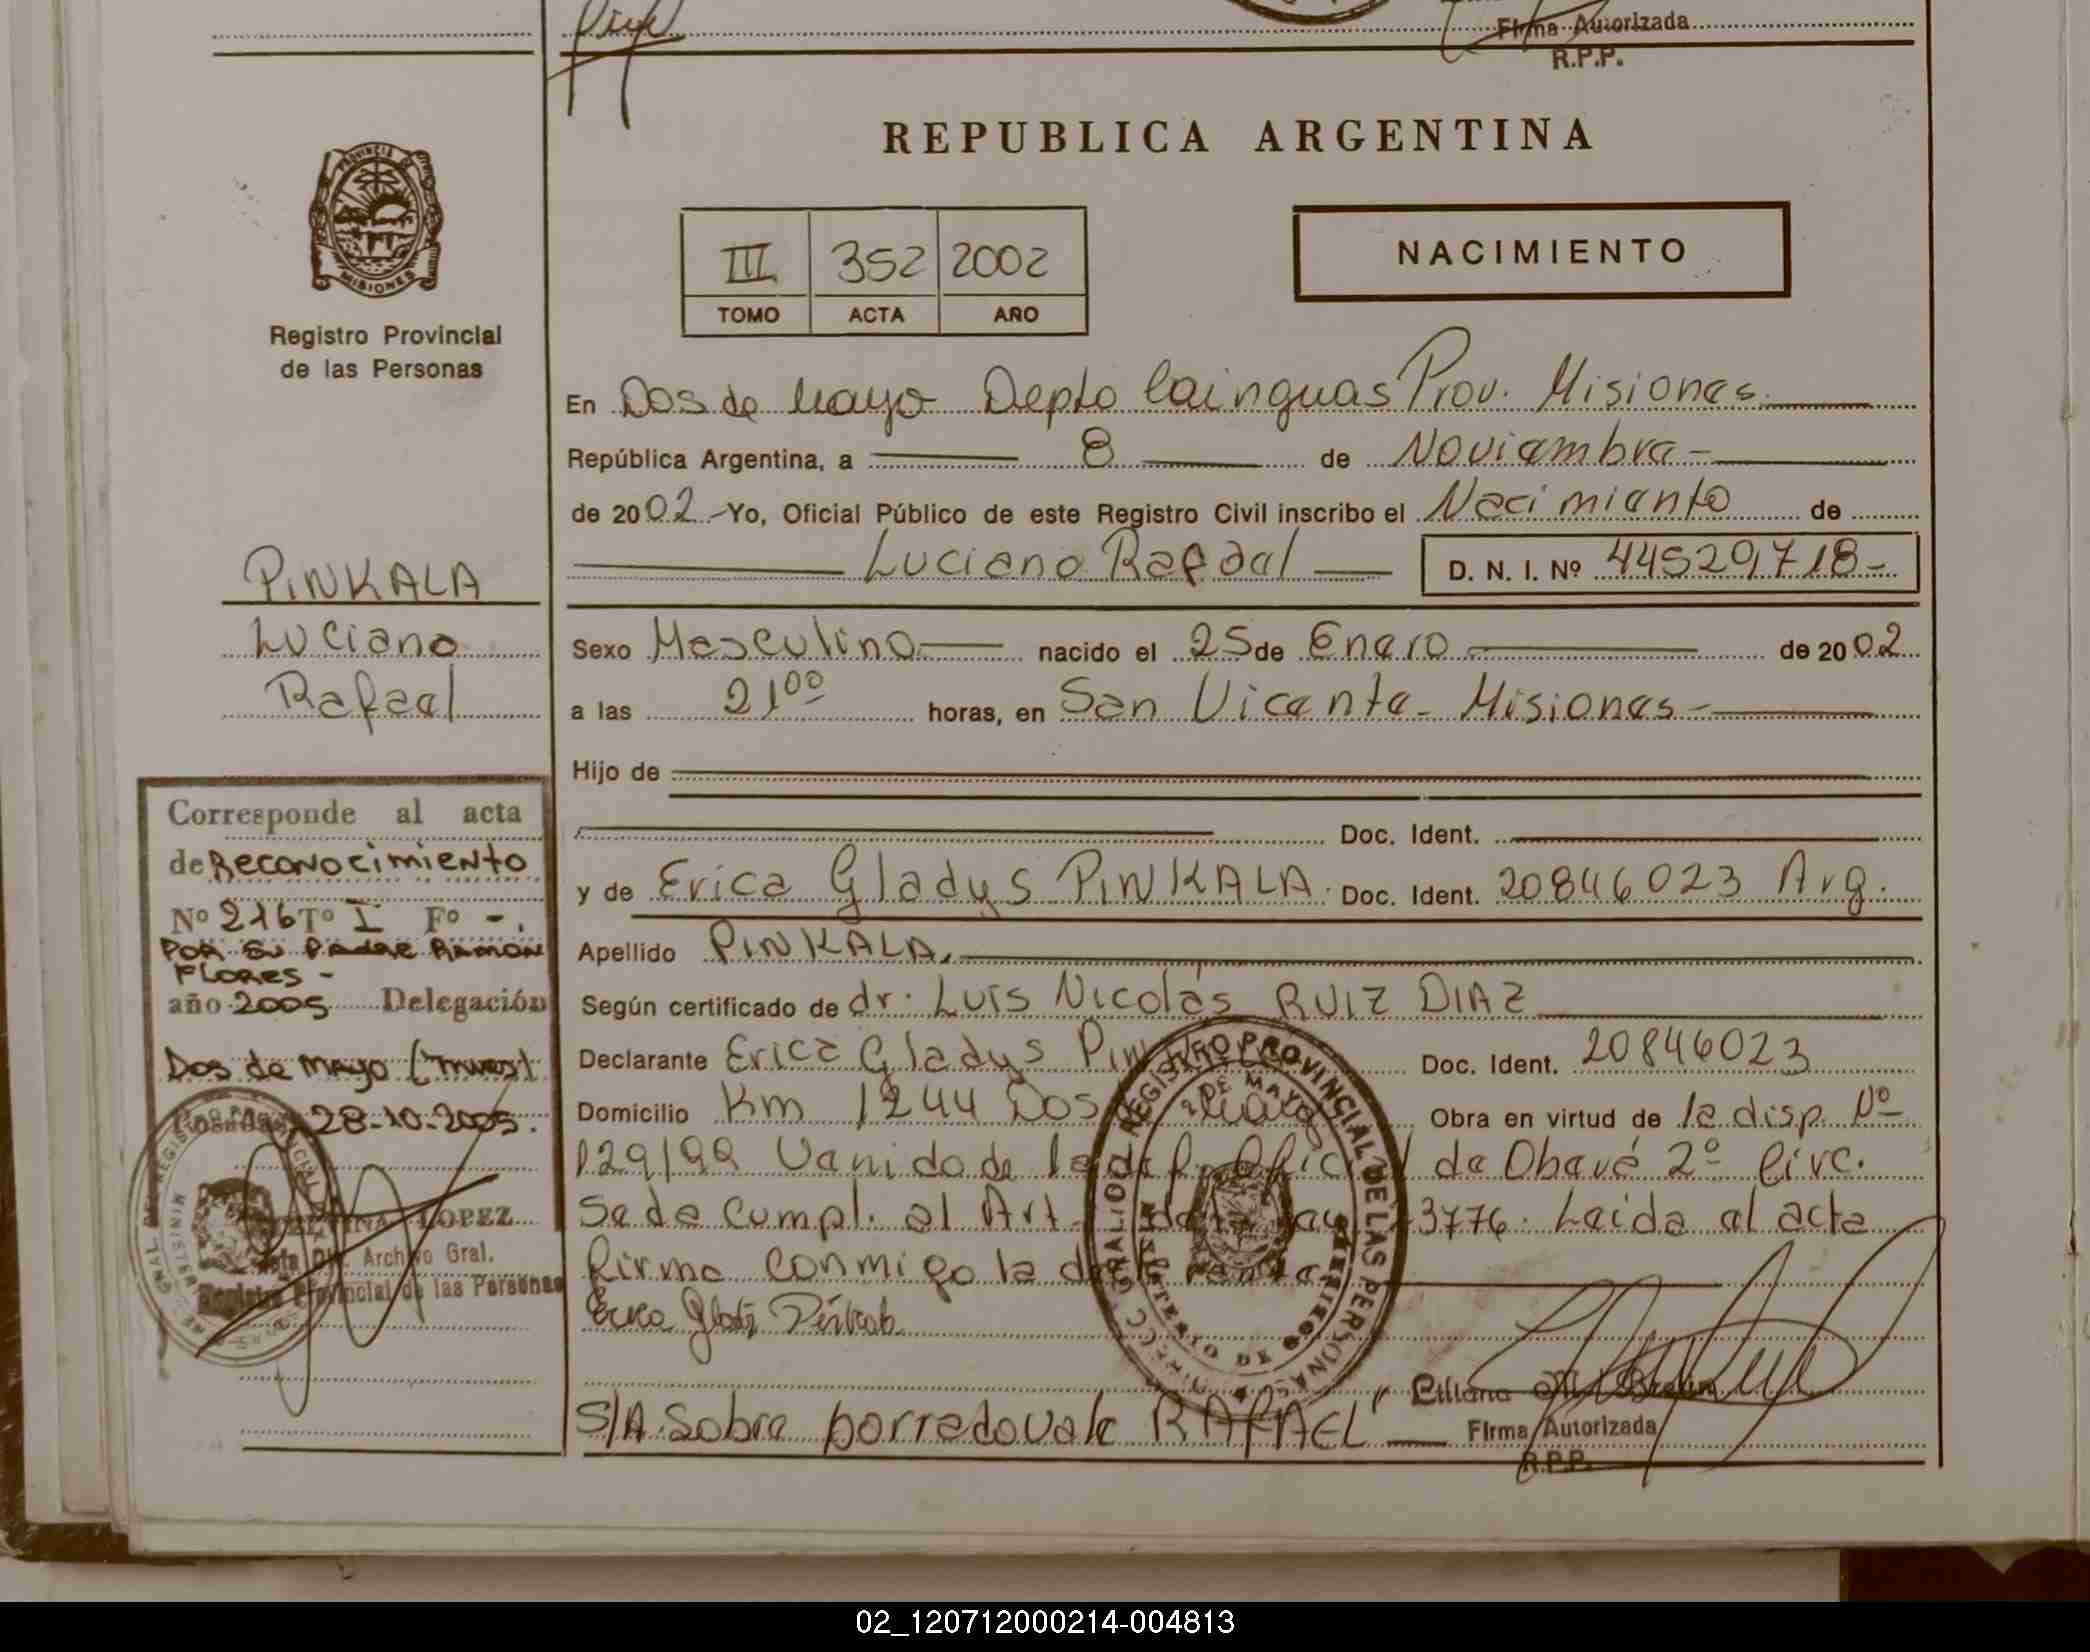 Firma Autorizada
R.P.P.
REPUBLICA ARGENTINA
PROVINCIA DE
MISIONES
Registro Provincial
de las Personas
III 352 2002
TOMO ACTA AÑO
NACIMIENTO
En Dos de Mayo Depto Cainguas Prov. Misiones
República Argentina, a 8 de Noviembre
de 2002 Yo, Oficial Público de este Registro Civil inscribo el Nacimiento de
Luciano Rafael D. N. I. Nº 44529718
PINKALA
Luciano
Rafael
Sexo Masculino nacido el 25 de Enero de 2002
a las 21⁰⁰ horas, en San Vicente - Misiones
Hijo de
Doc. Ident.
y de Erica Gladys PINKALA. Doc. Ident. 20846023 Arg.
Apellido PINKALA.
Según certificado de dr. Luis Nicolás RUIZ DIAZ
Declarante Erica Gladys Doc. Ident. 20846023
Domicilio Km 1244 Dos Obra en virtud de la disp. Nº
129/99 Venido de la del. de Oberá 2º Circ.
Se da cumpl. al Art. 23776. Leida el acta
firma conmigo la
S/A. Sobre borrado vale RAFAEL"
Firma Autorizada
R.P.P.
Corresponde al acta
de Reconocimiento
Nº 216 Tº I Fº -.
POR SU PADRE RAMON
FLORES -
año 2005 Delegación
Dos de Mayo
28-10-2005.
LOPEZ
Archivo Gral.
Registro Provincial de las Personas
REGISTRO PROVINCIAL DE LAS PERSONAS
2 DE MAYO
02_120712000214-004813